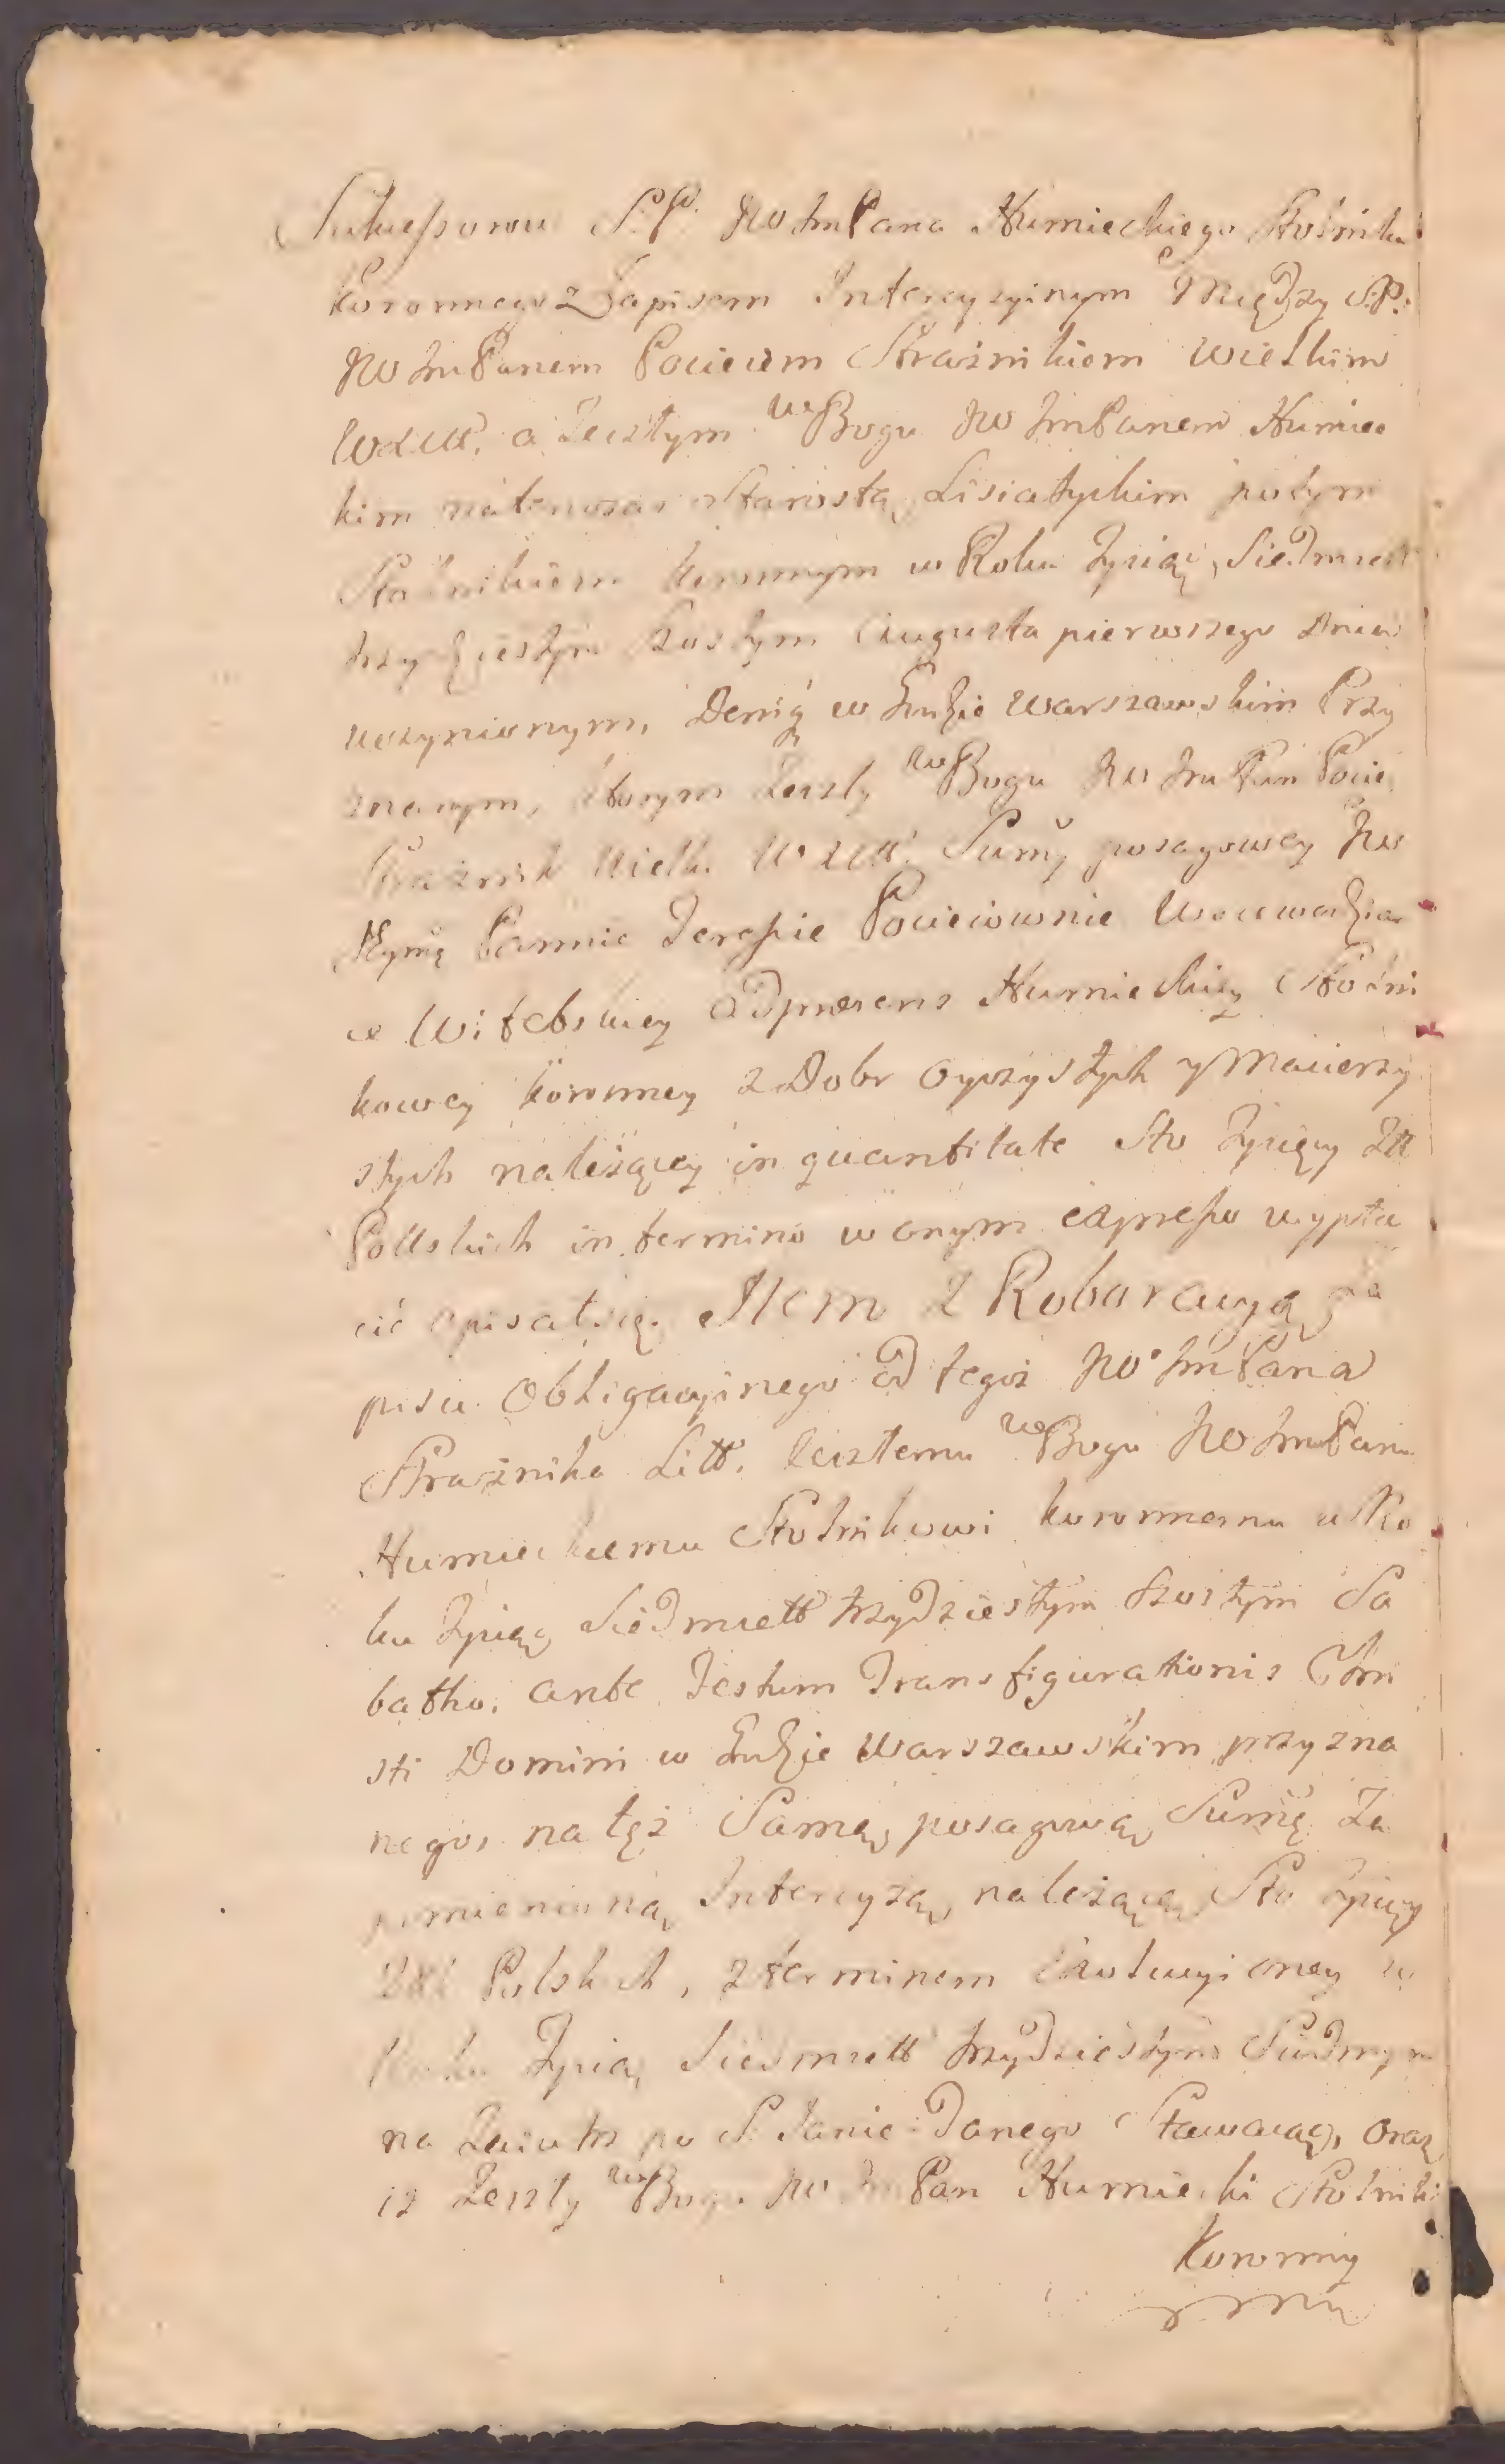 Sukcessorow S.P. JW ImPana Humieckiego Stolnika
Koronnego z Zapisem Intercyzyinym Między S.P.
JW ImPanem Pocieiem Strażnikiem Wielkim
WXLitt. a Zeszłym w Bogu JW ImPanem Humiec
kim natenczas Starostą Lisiatyckim potym
Stolnikiem Koronnym w Roku Tysiąc Siedmsett
trzydziestym Szostym Augusta pierwszego Dnia
uczynionym, Deniq w Grudzie Warszawskim Przy
znanym, ktorym Zeszły w Bogu JW Im Pan Pociey
Strażnik Wielki WXLitt. Summy posagowey JW
Jeymę Pannie Teressie Pocieiownie Woiewodzian
ce Witebskiey adpræsens Humieckiey Stolni
kowey Koronney z Dobr Oyczystych y Macierzy
stych należącey in quantitate Sto Tysięcy Złł
Pollskich in termino w onym expresso wypła
cić opisał się. Item z Roboracyą Za
pisu Obligacyinego od tegoż JW ImPana
Strażnika Litt. Zeszłemu w Bogu JW ImPanu
Humieckiemu Stolnikowi Koronnemu w Ro
ku Tysiąc Siedmsett trzydziestym Szostym Sa
batho ante Festum Transfigurationis Chri
sti Domini w Grodzie Warszawskim przyzna
nego, na tęż Samą posagową Summę Za
pomienioną Intercyzą należącą Sto Tysięcy
Złł Polskich, z terminem Ewikcyi oney w
Roku Tysiąc Siedmsett trzydziestym Siudmym
na Zaiutrz po S. Janie Danego Stawaiąc, oraz
iż Zeszły w Bogu JW Im Pan Humiecki Stolnik
Koronny